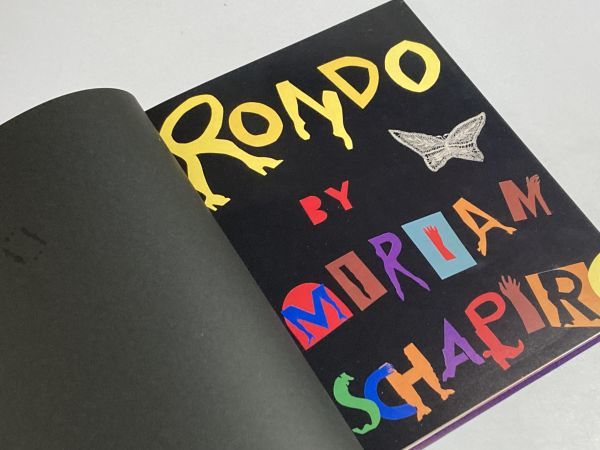 RONDO
BY
MIRIAM
SCHAPIRO